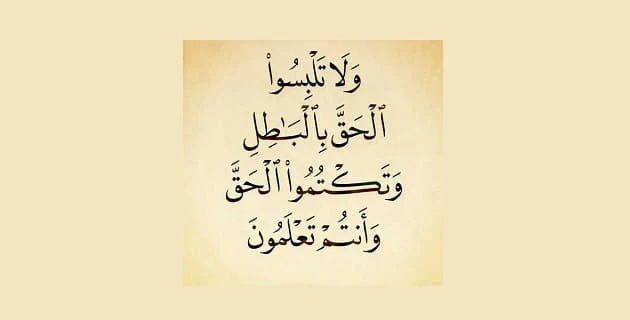 وَلَا تَلْبِسُوا۟
ٱلْحَقَّ بِٱلْبَـٰطِلِ
وَتَكْتُمُوا۟ ٱلْحَقَّ
وَأَنتُمْ تَعْلَمُونَ